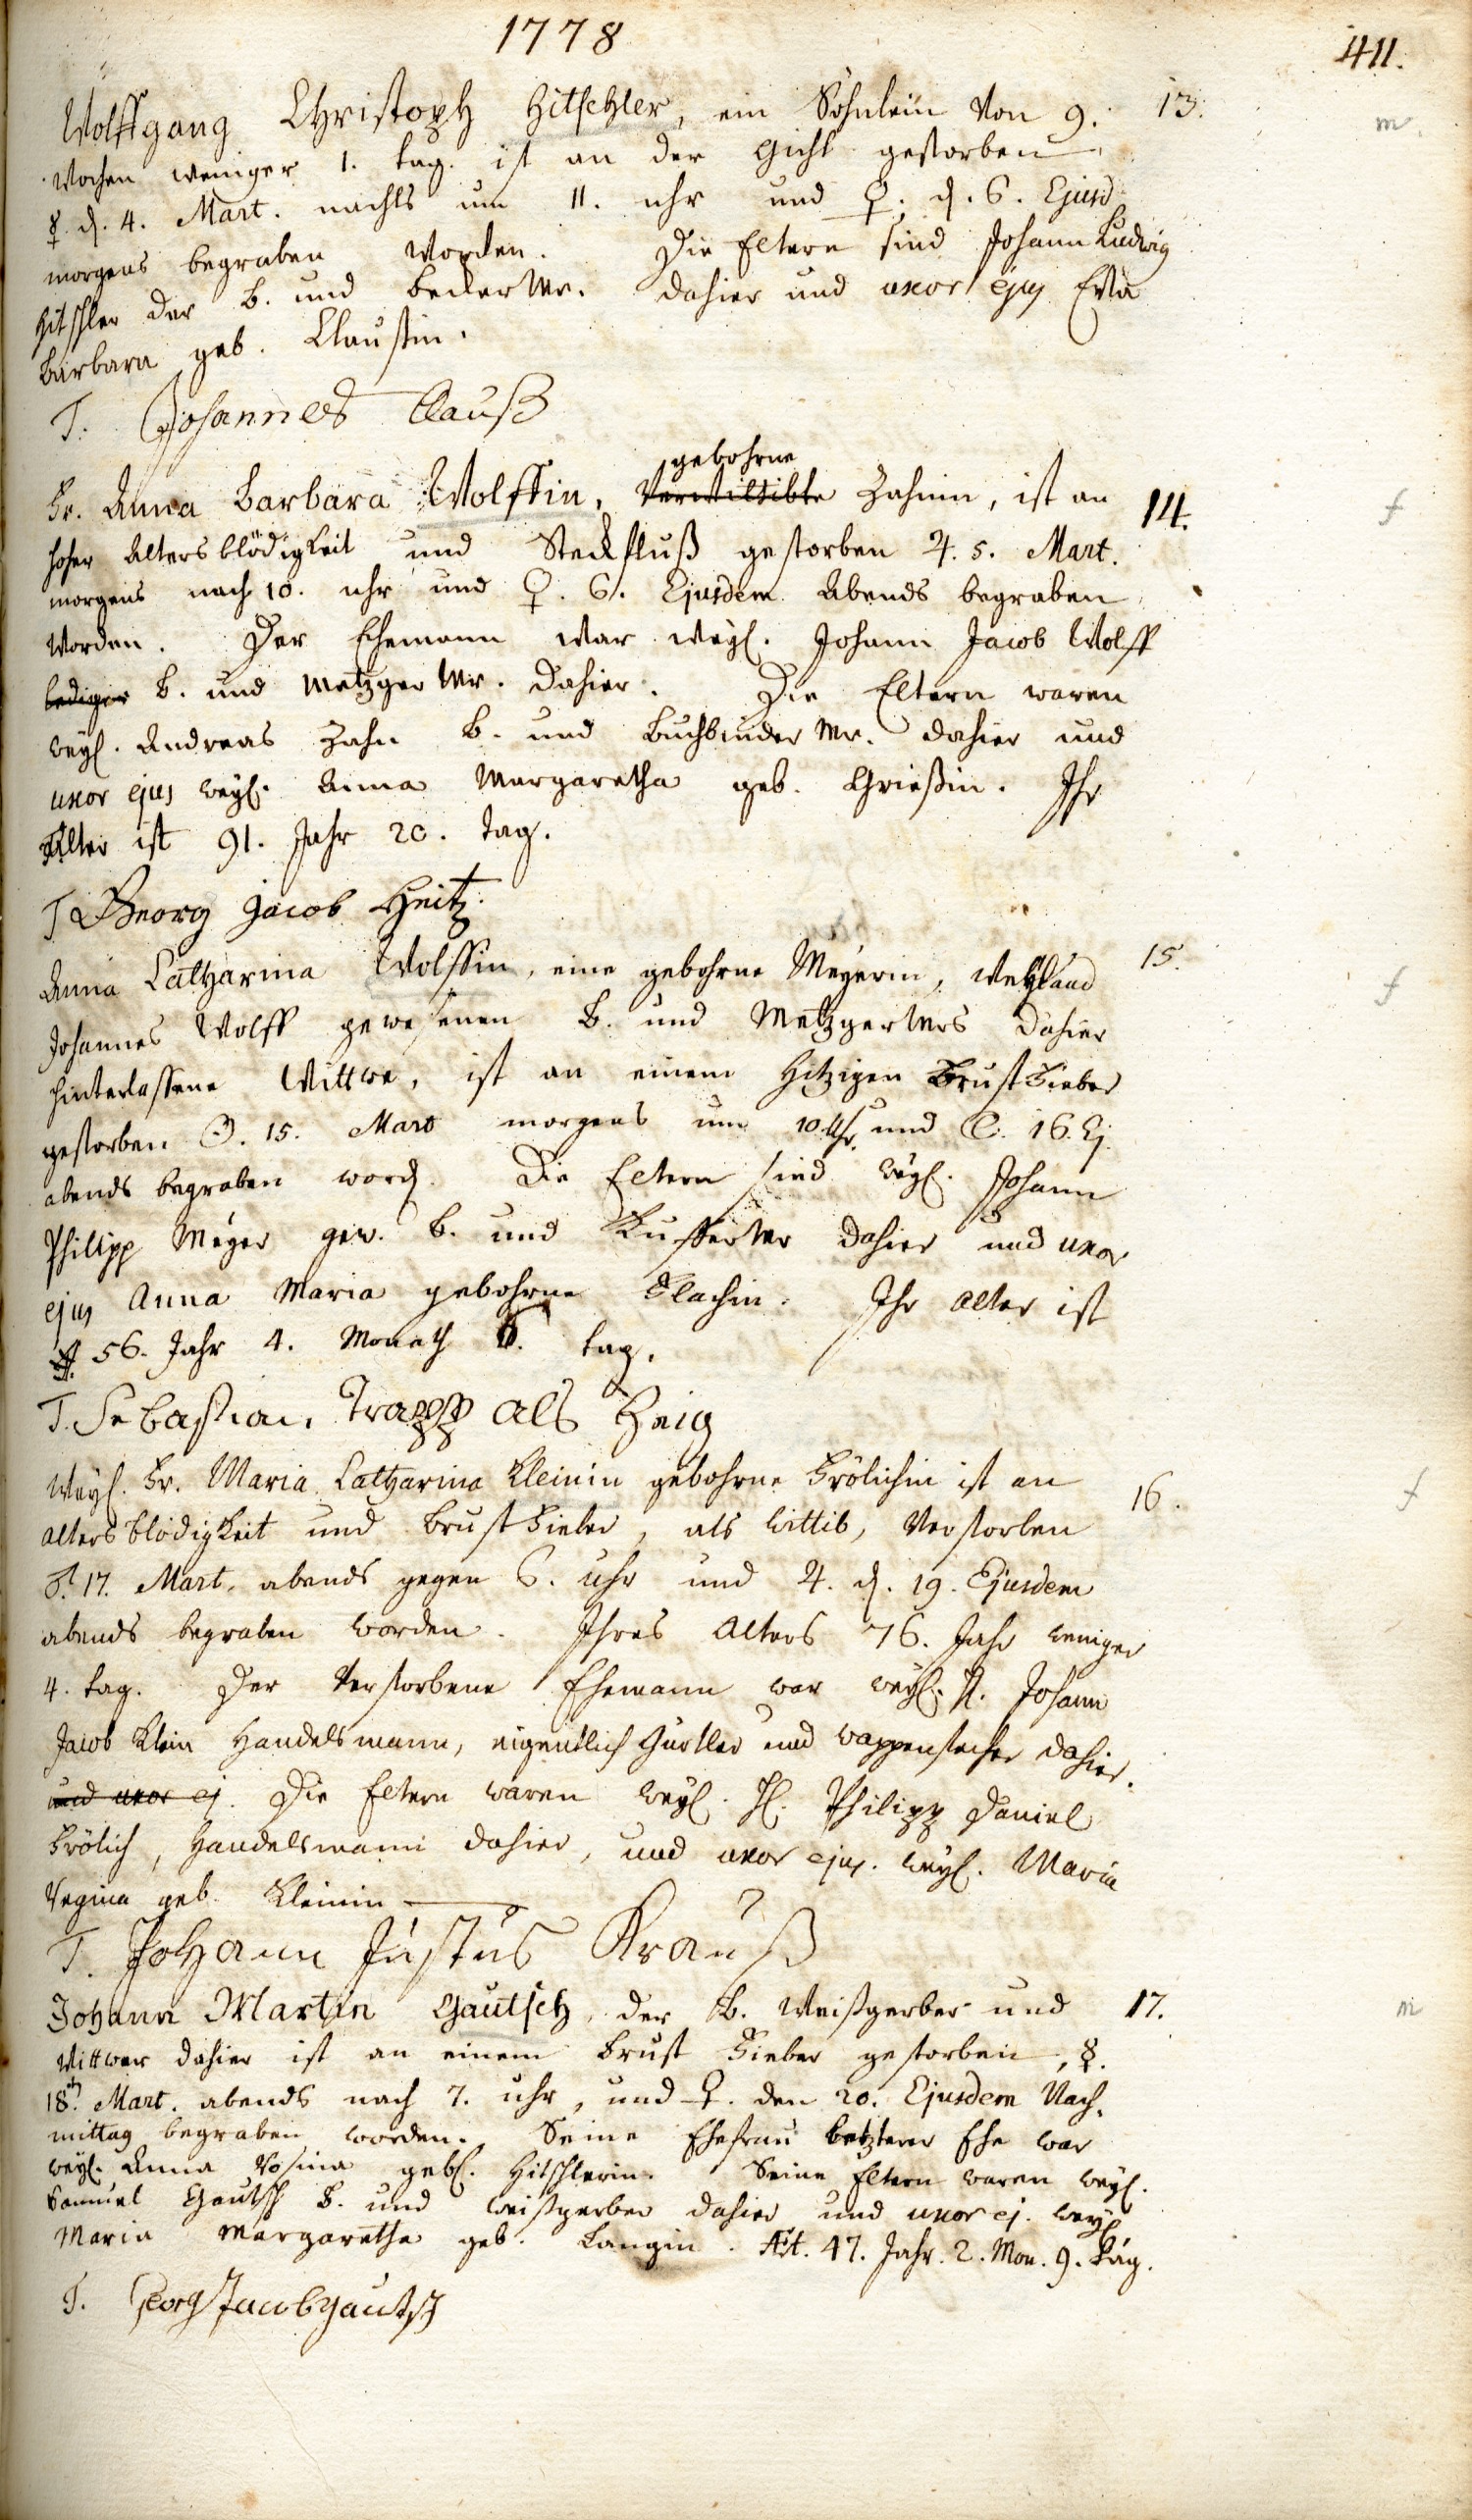 1778
411.
Wolffgang Christoph Hitschler, ein Söhnlein von 9. 13. m.
Wochen weniger 1. tag. ist an der Gicht gestorben
☿. d. 4. Mart. nachts um 11. uhr und ♀. d. 6. Ejusd
morgens begraben worden. Die Eltern sind Johann Ludwig
Hitschler der B. und Becker Mr. dahier und uxor ejus Eva
Barbara geb. Claussin.
T. Johannes Clauß
gebohrne
Fr. Anna Barbara Wolffin, Verwittibte Zahnin, ist an 14. f
hoher Altersblödigkeit und Steckfluß gestorben ♃. 5. Mart.
morgens nach 10. uhr und ♀. 6. Ejusdem Abends begraben
worden. Der Ehemann war weyl. Johann Jacob Wolff
lediger B. und Metzger Mr. dahier. Die Eltern waren
weyl. Andreas Zahn B. und Buchbinder Mr. dahier und
uxor ejus weyl. Anna Margaretha geb. Grießin. Ihr
Alter ist 91. Jahr 20. tag.
T Georg Jacob Heitz
Anna Catharina Wolffin, eine gebohrne Meyerin, weyland 15. f
Johannes Wolff gewesenen B. und Metzger Mrs dahier
hinterlassene Wittwe, ist an einem hitzigen Brust Fieber
gestorben ☉. 15. Mart morgens um 10 Uhr und ☾. 16. Ej.
abends begraben word. Die Eltern sind weyl. Johann
Philipp Meyer gew. B. und Kuffer Mr dahier und uxor
ejus Anna Maria gebohrne Flachin. Ihr Alter ist
56. Jahr 4. Monath tag.
T. Sebastian Trapp als Zeig
Weyl. Fr. Maria Catharina Kleinin gebohrne Frölichin ist an 16. f
Altersblödigkeit und Brust Fieber, als Wittib, verstorben
♂. 17. Mart. abends gegen 6. uhr und ♃. d. 19. Ejusdem
abends begraben worden. Ihres Alters 76. Jahr weniger
4. tag. Der verstorbene Ehemann war weyl. H. Johann
Jacob Klein Handelsmann, eigentlich Gürtler und wappenstecher dahier.
und uxor ej. Die Eltern waren weyl. H. Philipp Daniel
Frölich, Handelsmann dahier, und uxor ejus. weyl. Maria
Regina geb. Kleinin
T. Johann Justus Krauß
Johann Martin Gautsch, der B. Weißgerber und 17. m
Wittwer dahier ist an einem Brust Fieber gestorben, ☿.
18. Mart. abends nach 7. uhr, und ♀. den 20. Ejusdem Nach-
mittag begraben worden. Seine Ehefrau letzterer Ehe war
weyl. Anna Rosina geb. Hitschlerin. Seine Eltern waren weyl.
Samuel Gautsch B. und weißgerber dahier und uxor ej. weyl.
Maria Margaretha geb. Langin. Æt. 47. Jahr. 2. Mon. 9. Täg.
T. Georg Jacob Gautsch